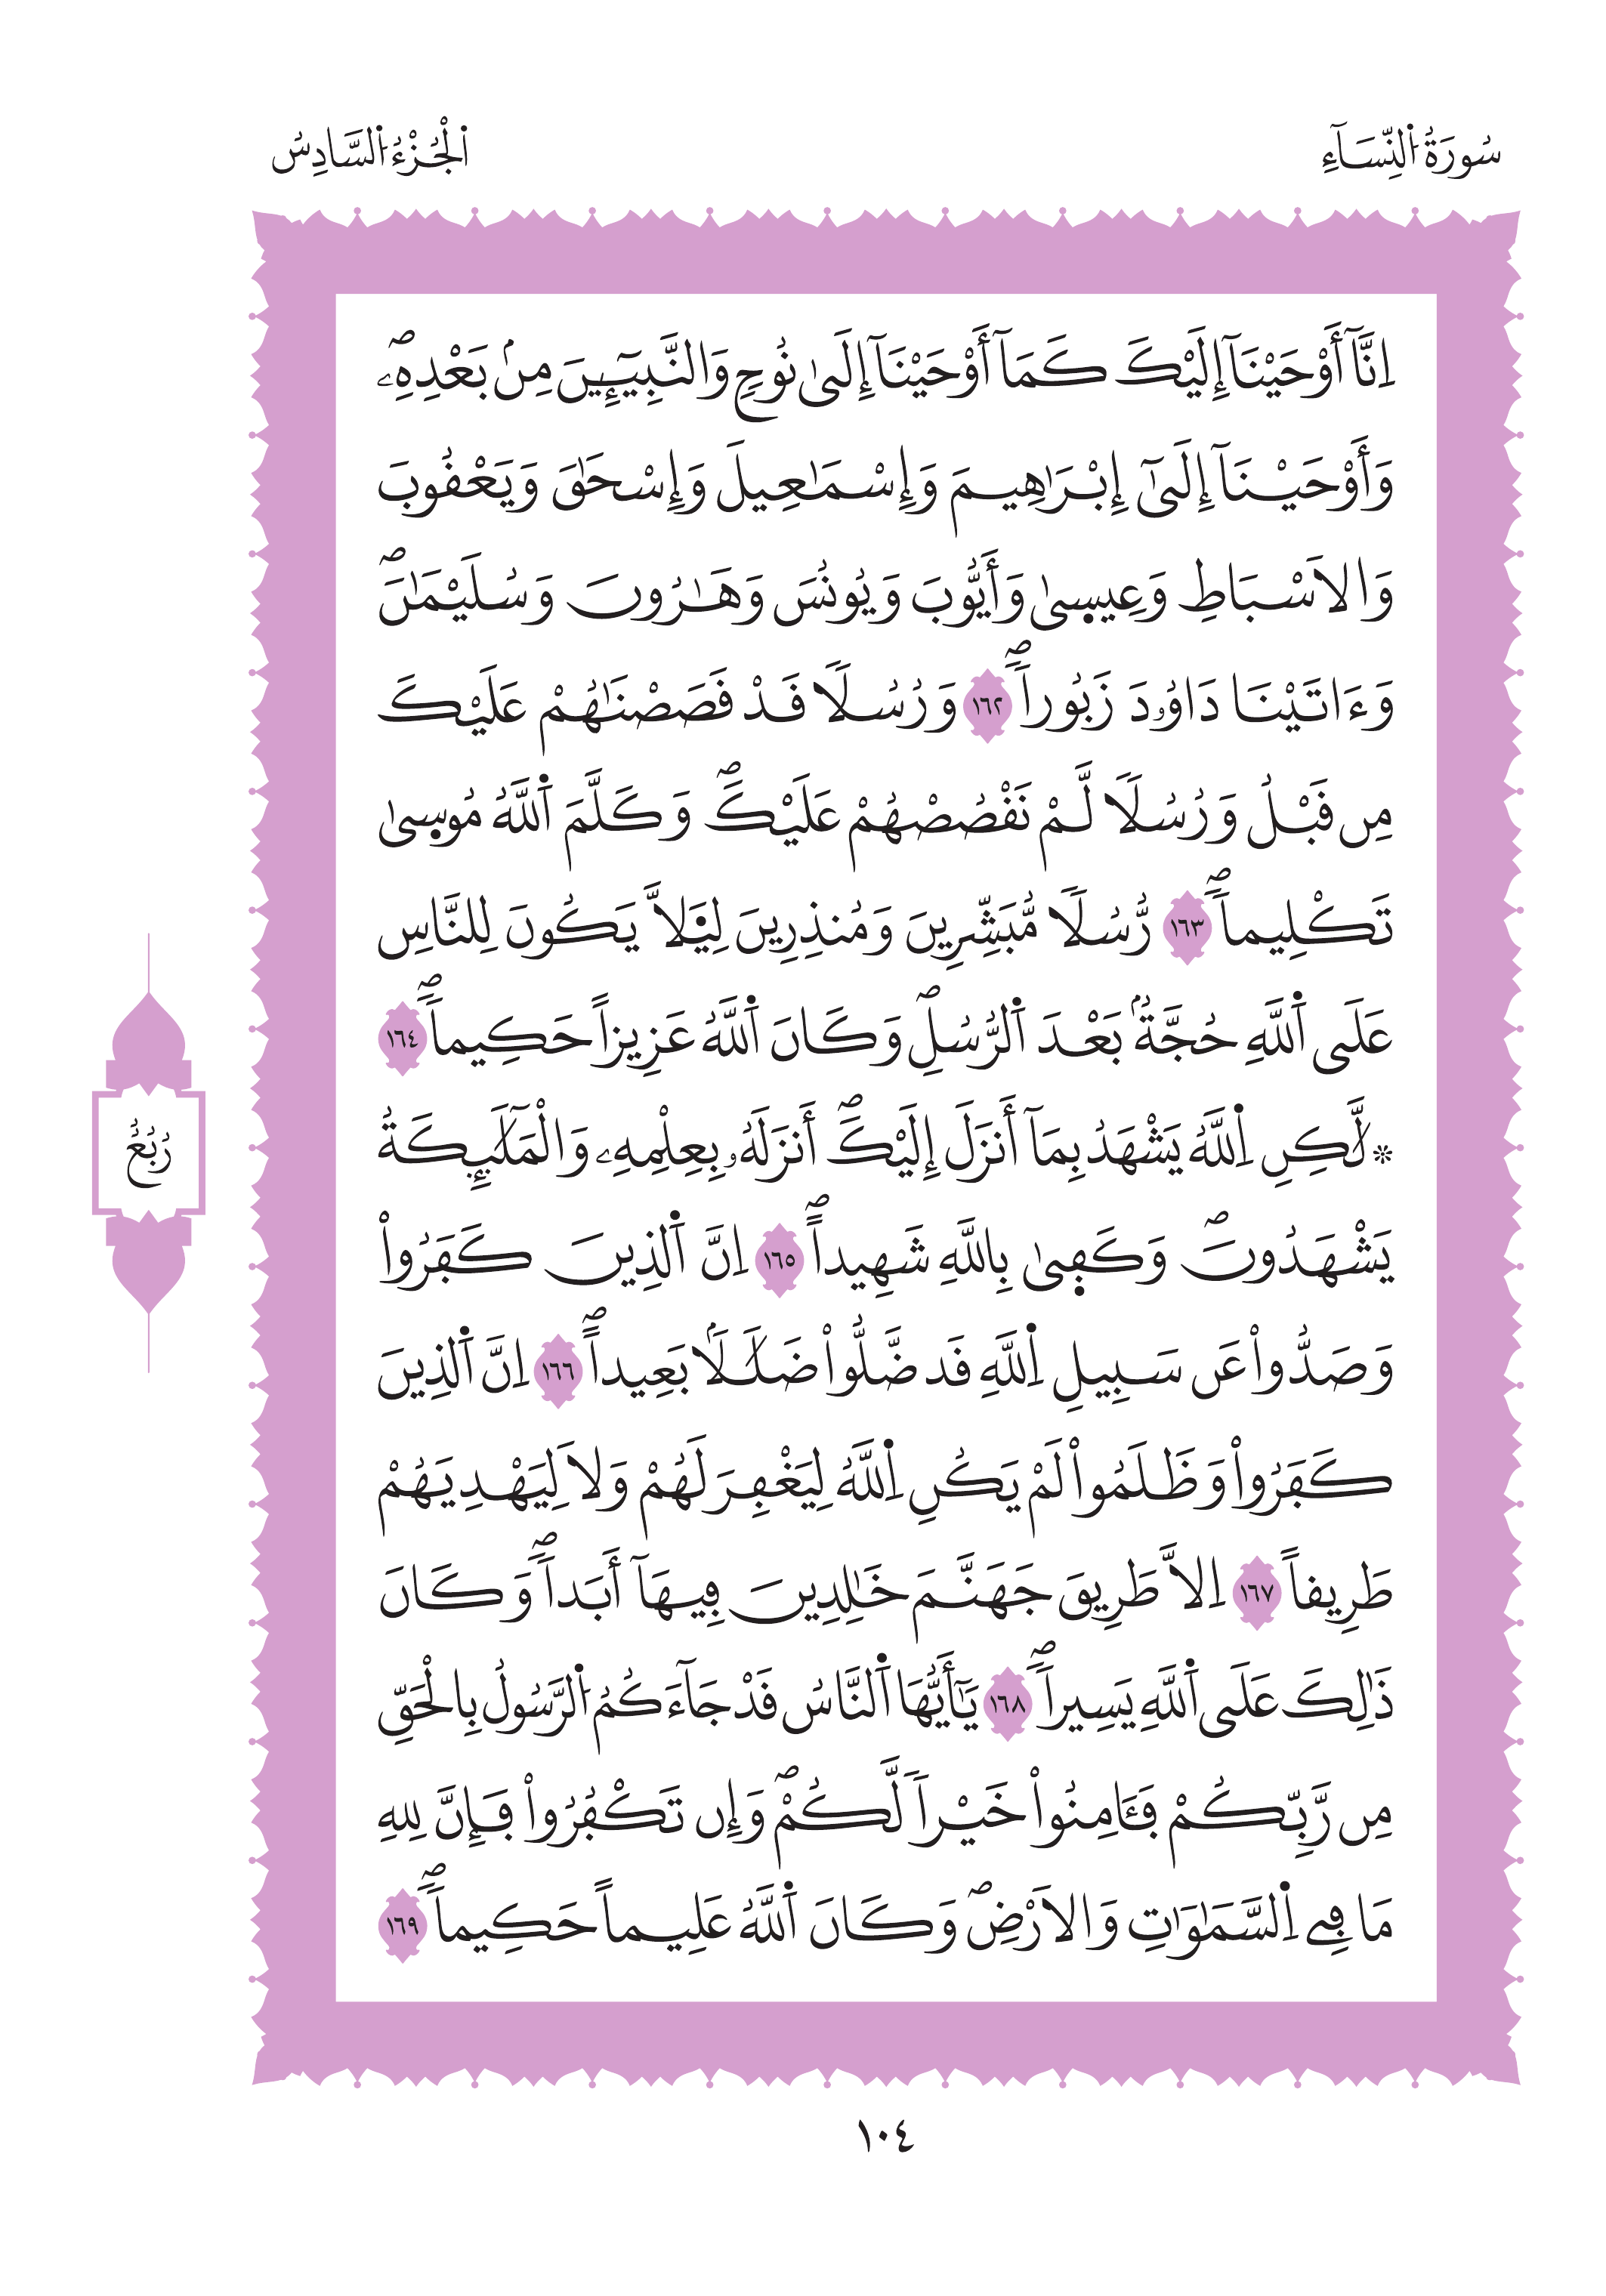 سُورَةُ اُ۬لنِّسَآءِ
اُ۬لْجُزْءُ اُ۬لسَّادِسُ
اِنَّآ أَوْحَيْنَآ إِلَيْكَ كَمَآ أَوْحَيْنَآ إِلَىٰ نُوحٖ وَالنَّبِيٓـِٕينَ مِنۢ بَعْدِهِۦۖ
وَأَوْحَيْنَآ إِلَىٰٓ إِبْرَٰهِيمَ وَإِسْمَٰعِيلَ وَإِسْحَٰقَ وَيَعْقُوبَ
وَالَاسْبَاطِ وَعِيس۪ىٰ وَأَيُّوبَ وَيُونُسَ وَهَٰرُونَ وَسُلَيْمَٰنَۖ
وَءَاتَيْنَا دَاوُۥدَ زَبُوراٗۖ ١٦٢ وَرُسُلاٗ قَدْ قَصَصْنَٰهُمْ عَلَيْكَ
مِن قَبْلُ وَرُسُلاٗ لَّمْ نَقْصُصْهُمْ عَلَيْكَۖ وَكَلَّمَ اَ۬للَّهُ مُوس۪ىٰ
تَكْلِيماٗۖ ١٦٣ رُّسُلاٗ مُّبَشِّرِينَ وَمُنذِرِينَ لِيَ۬لَّا يَكُونَ لِلنَّاسِ
عَلَى اَ۬للَّهِ حُجَّةُۢ بَعْدَ اَ۬لرُّسُلِۖ وَكَانَ اَ۬للَّهُ عَزِيزاً حَكِيماٗۖ ١٦٤
۞ لَّٰكِنِ اِ۬للَّهُ يَشْهَدُ بِمَآ أَنزَلَ إِلَيْكَۖ أَنزَلَهُۥ بِعِلْمِهِۦ وَالْمَلَٰٓئِكَةُ
يَشْهَدُونَۖ وَكَف۪ىٰ بِاللَّهِ شَهِيداًۖ ١٦٥ اِنَّ اَ۬لذِينَ كَفَرُواْ
وَصَدُّواْ عَن سَبِيلِ اِ۬للَّهِ قَد ضَّلُّواْ ضَلَٰلاَۢ بَعِيداًۖ ١٦٦ اِنَّ اَ۬لذِينَ
كَفَرُواْ وَظَلَمُواْ لَمْ يَكُنِ اِ۬للَّهُ لِيَغْفِرَ لَهُمْ وَلَا لِيَهْدِيَهُمْ
طَرِيقاً ١٦٧ اِلَّا طَرِيقَ جَهَنَّمَ خَٰلِدِينَ فِيهَآ أَبَداٗۖ وَكَانَ
ذَٰلِكَ عَلَى اَ۬للَّهِ يَسِيراٗۖ ١٦٨ يَٰٓأَيُّهَا اَ۬لنَّاسُ قَدْ جَآءَكُمُ اُ۬لرَّسُولُ بِالْحَقِّ
مِن رَّبِّكُمْ فَـَٔامِنُواْ خَيْراٗ لَّكُمْۖ وَإِن تَكْفُرُواْ فَإِنَّ لِلهِ
مَا فِے اِ۬لسَّمَٰوَٰتِ وَالَارْضِۖ وَكَانَ اَ۬للَّهُ عَلِيماً حَكِيماٗۖ ١٦٩
رُبُعُ
١٠٤